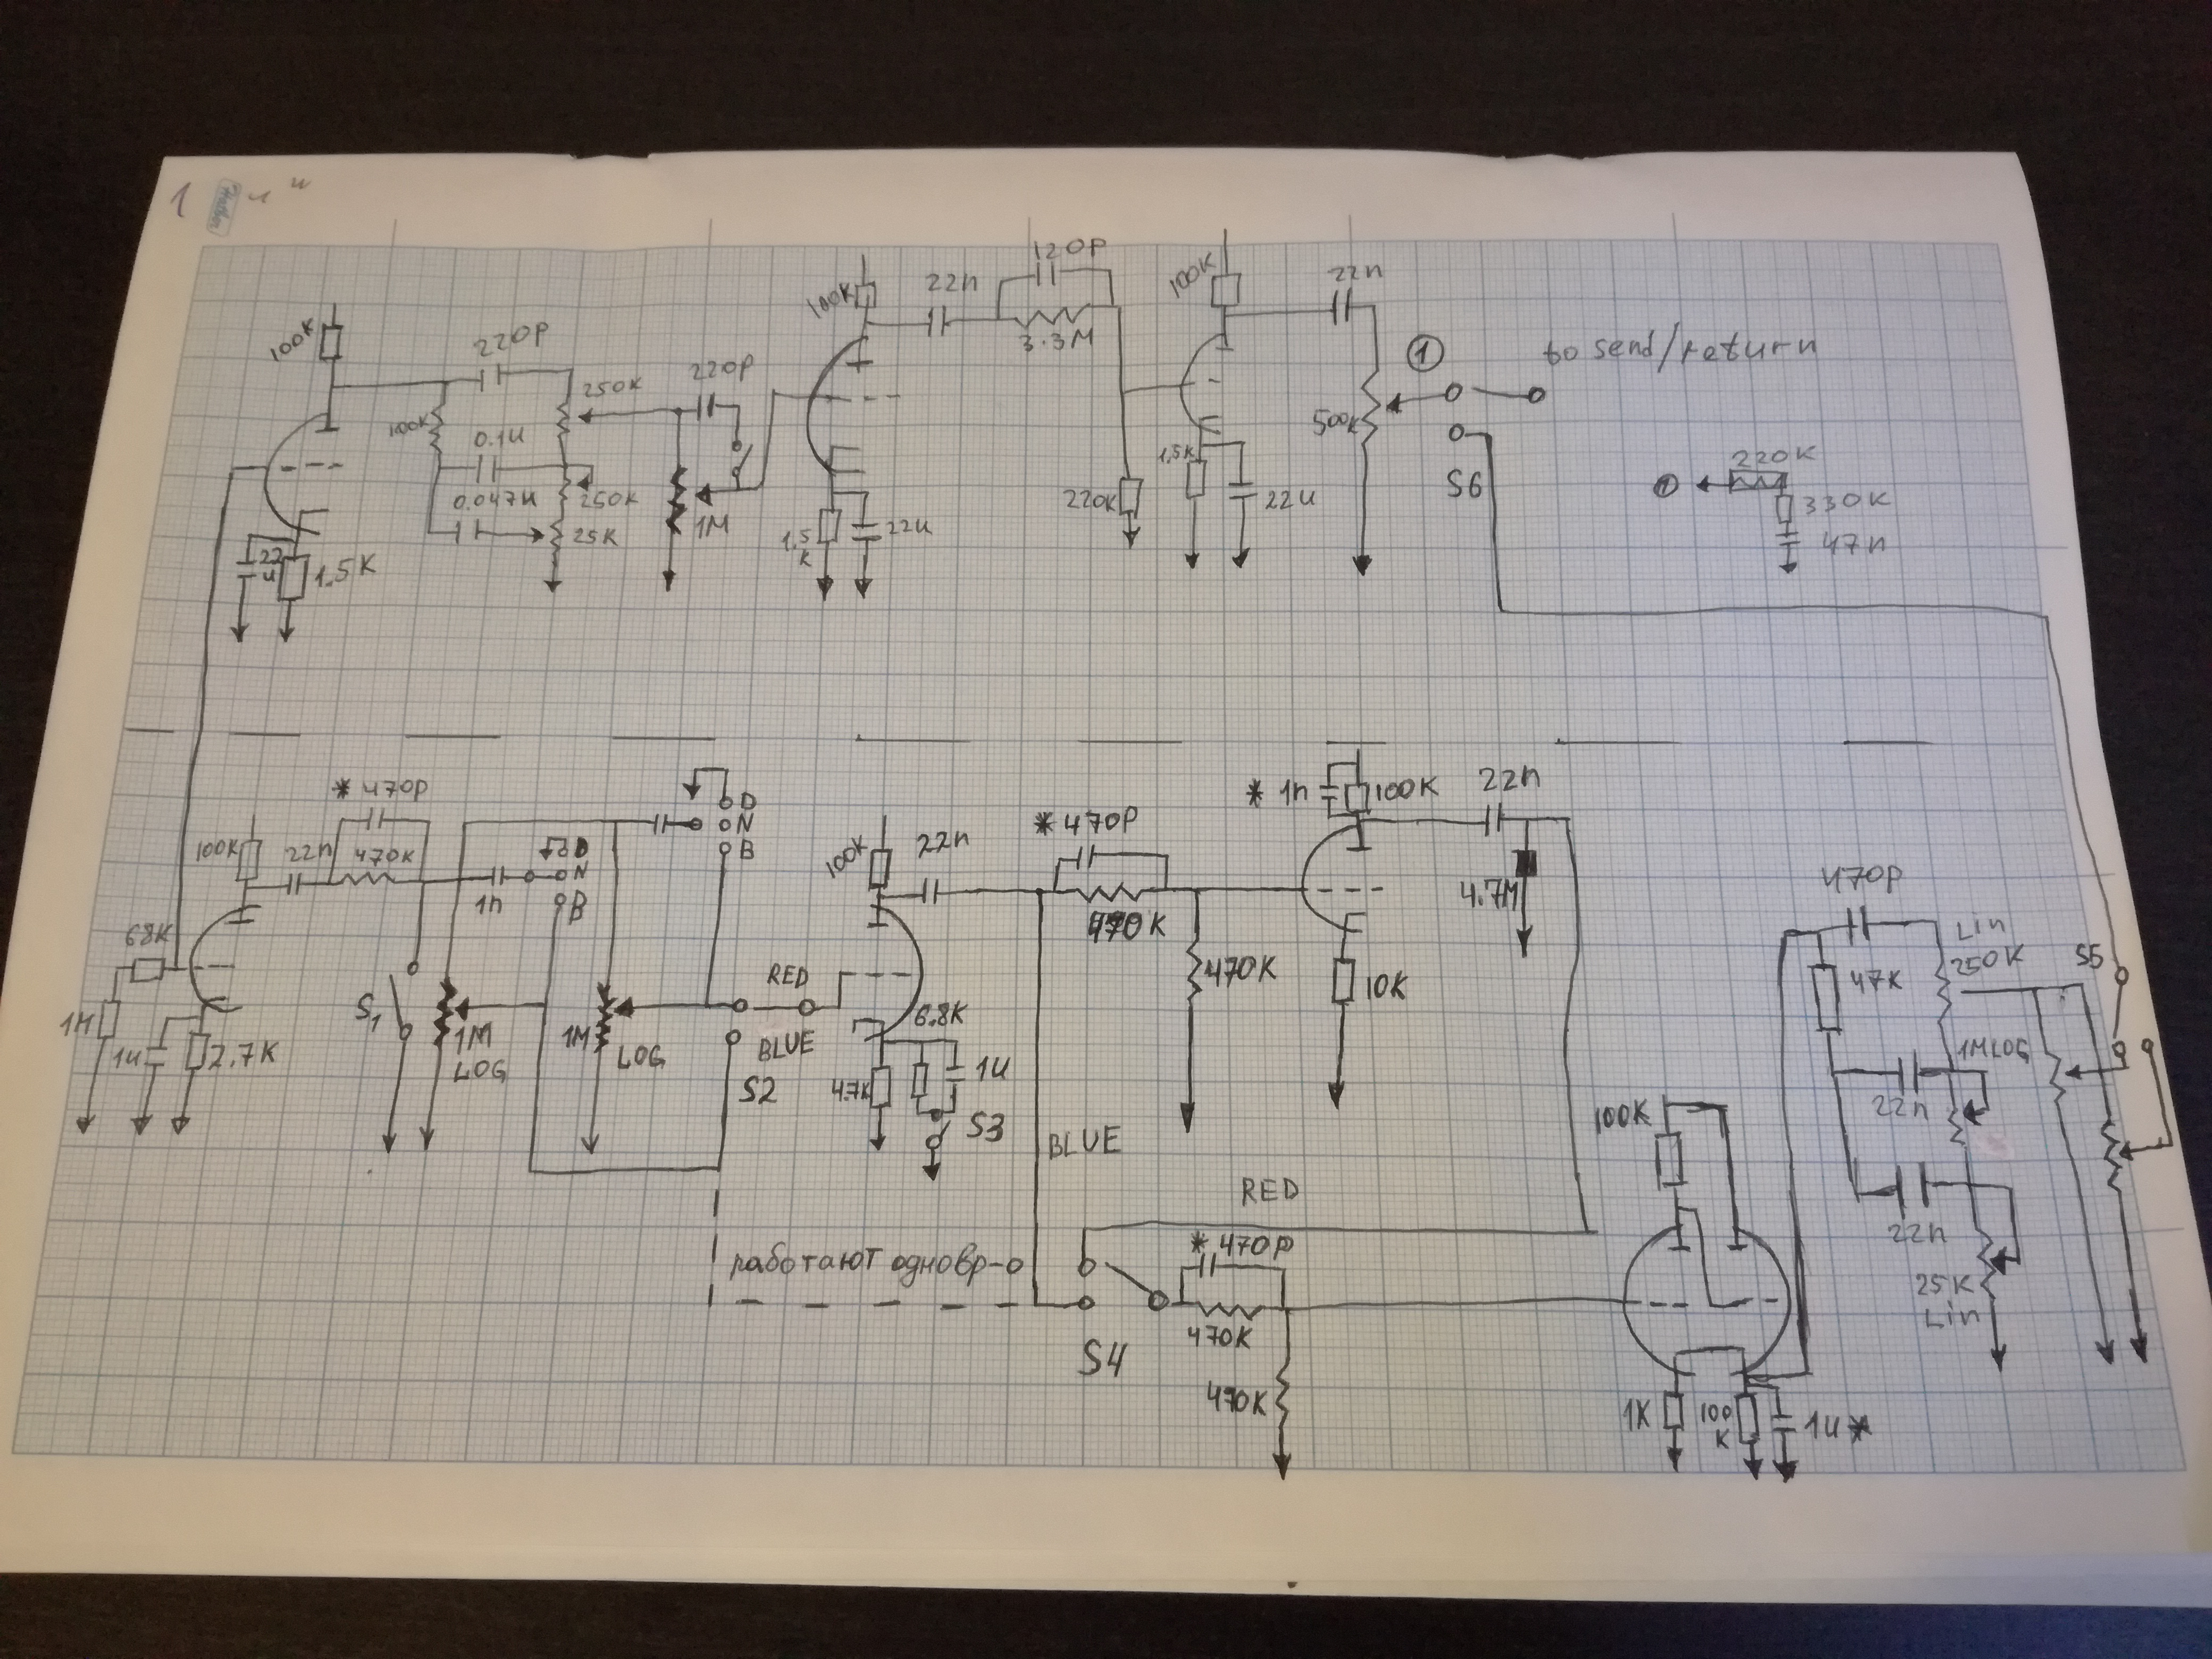 1
120P
100K
22n
100K
22n
100K
220P
3.3M
①
to send/return
250K
220P
100K
0.1u
500K
0.047u
250K
1.5K
220K
S6
220K
25K
1M
1.5
K
22u
220K
22u
①
330K
22
u
1.5K
47n
* 470P
D
N
B
* 1n
100K
22n
100K
22n
470K
D
N
B
1n
100K
22n
* 470P
4.7M
470P
68K
470K
Lin
250K
S5
RED
470K
10K
47K
1M
1u
2.7K
S1
1M
LOG
1M
LOG
BLUE
S2
6.8K
4.7K
1u
S3
1M LOG
22n
BLUE
100K
RED
22n
работают одновр-о
* 470P
25K
Lin
470K
S4
470K
1K
100
K
1u *